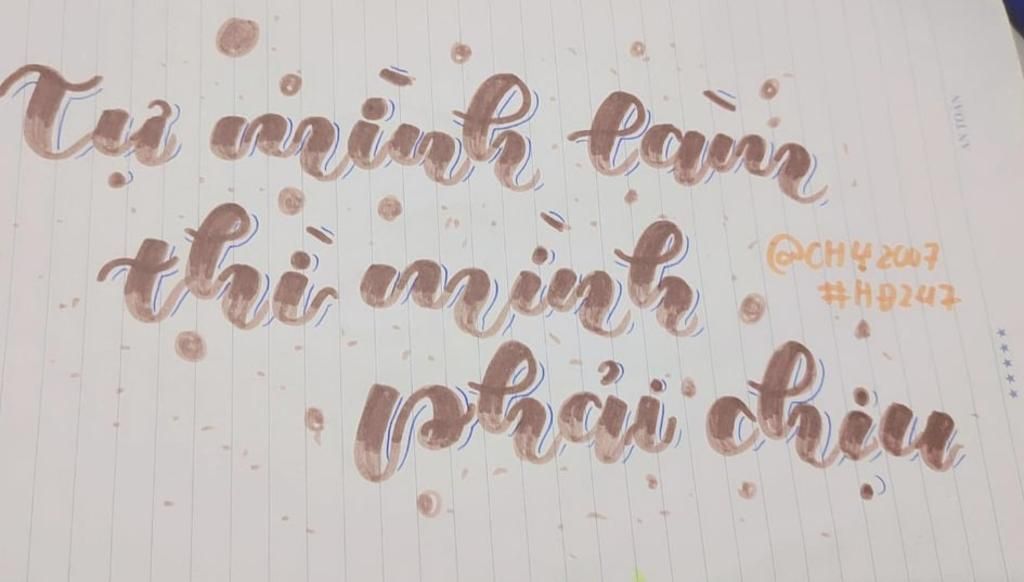 Tự mình làm
thì mình
phải chịu
@CH42007
#HD247
ANTOAN